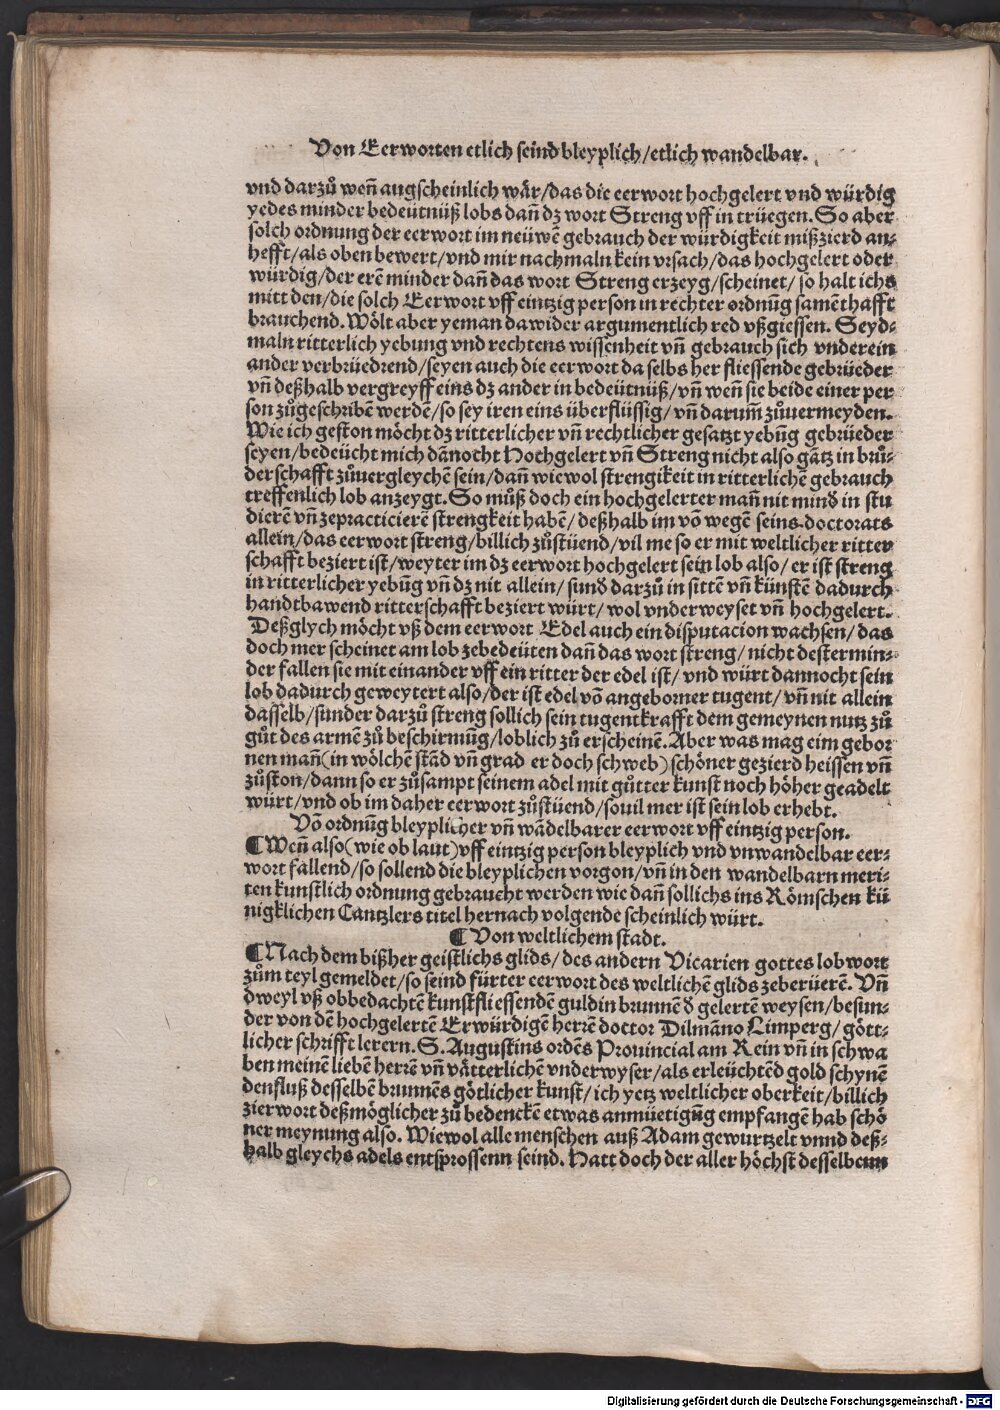 Von Eerworten etlich seind bleyplich/etlich wandelbar.
vnd darzů weñ augscheinlich wår/das die eerwort hochgelert vnd würdig
yedes minder bedeütnüß lobs dañ dz wort Streng vff in trüegen. So aber
solch ordnung der eerwort im neüwē gebrauch der würdigkeit mißzierd an⸗
hefft/als oben bewert/vnd mir nachmaln kein vrsach/das hochgelert oder
würdig/der erē minder dañ das wort Streng erzeyg/scheinet/ so halt ichs
mitt den/die solch Eerwort vff eintzig person in rechter ordnūg samēthafft
brauchend. Wölt aber yeman dawider argumentlich red vßgiessen. Seyd⸗
maln ritterlich yebung vnd rechtens wissenheit vñ gebrauch sich vnderein
ander verbrüedrend/seyen auch die eerwort da selbs her fliessende gebrüeder
vñ deßhalb vergreyff eins dz ander in bedeütnüß/vñ weñ sie beide einer per
son zůgeschribē werdē/so sey iren eins überflüssig/vñ darum̃ zůuermeyden.
Wie ich geston möcht dz ritterlicher vñ rechtlicher gesatzt yebūg gebrüeder
seyen/bedeücht mich dānocht Hochgelert vñ Streng nicht also gātz in brů⸗
derschafft zůuergleychē sein/dañ wiewol strengikeit in ritterlichē gebrauch
treffenlich lob anzeygt. So můß doch ein hochgelerter mañ nit mind̄ in stu
dierē vñ zepracticierē strengkeit habē/ deßhalb im vō wegē seins doctorats
allein/das eerwort streng/billich zůstüend/vil me so er mit weltlicher ritter
schafft beziert ist/weyter im dz eerwort hochgelert sein lob also/ er ist streng
in ritterlicher yebūg vñ dz nit allein/ sund̄ darzů in sittē vñ künstē dadurch
handtbawend ritterschafft beziert würt/ wol vnderweyset vñ hochgelert.
Deßglych möcht vß dem eerwort Edel auch ein disputacion wachsen/ das
doch mer scheinet am lob zebedeüten dañ das wort streng/ nicht destermin⸗
der fallen sie mit einander vff ein ritter der edel ist/ vnd würt dannocht sein
lob dadurch geweytert also/der ist edel vō angeborner tugent/ vñ nit allein
dasselb/sunder darzů streng sollich sein tugentkrafft dem gemeynen nutz zů
gůt des armē zů beschirmūg/loblich zů erscheinē. Aber was mag eim gebor
nen mañ(in wölchē stād vñ grad er doch schweb)schöner gezierd heissen vñ
zůston/dann so er zůsampt seinem adel mit gůtter kunst noch höher geadelt
würt/vnd ob im daher eerwort zůstüend/souil mer ist sein lob erhebt.
Vō ordnūg bleyplicher vñ wādelbarer eerwort vff eintzig person.
¶ Weñ also(wie ob laut)vff eintzig person bleyplich vnd vnwandelbar eer⸗
wort fallend/so sollend die bleyplichen vorgon/vñ in den wandelbarn meri⸗
ten kunstlich ordnung gebraucht werden wie dañ sollichs ins Römschen kü
nigklichen Cantzlers titel hernach volgende scheinlich würt.
¶ Von weltlichem stadt.
¶ Nach dem bißher geistlichs glids/des andern Vicarien gottes lobwort
zům teyl gemeldet/so seind fürter eerwort des weltlichē glids zeberüerē. Vñ
dweyl vß obbedachtē kunstfliessendē guldin brunnē d̄ gelertē weysen/besun⸗
der von dē hochgelertē Erwürdigē herrē doctor Dilmāno Limperg/ gött⸗
licher schrifft lerern. S. Augustins ordēs Prouincial am Rein vñ in schwa
ben meinē liebē herrē vñ våtterlichē vnderwyser/als erleüchtēd gold schynē
denfluß desselbē brunnēs götlicher kunst/ ich yetz weltlicher oberkeit/billich
zierwort deßmöglicher zů bedenckē etwas anmüetigūg empfangē hab schö
ner meynung also. Wiewol alle menschen auß Adam gewurtzelt vnnd deß⸗
halb gleychs adels entsprossenn seind. Hatt doch der aller höchst desselbenn
Digitalisierung gefördert durch die Deutsche Forschungsgemeinschaft - DFG